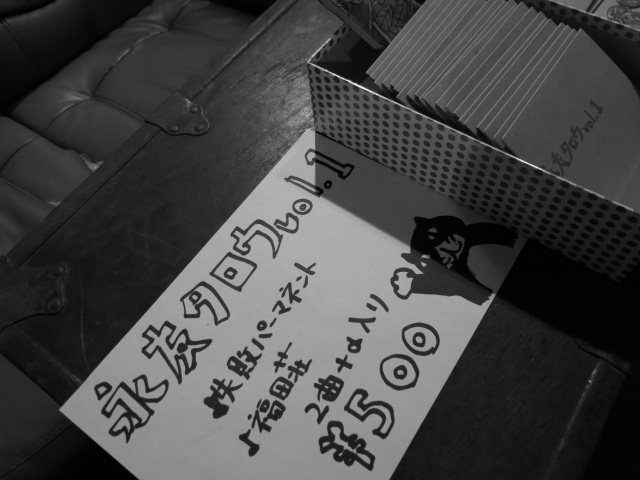 永友タロウvol.1
♪失敗パーマネント
♪福田荘
2曲+α入り
¥500
友タロウvol.1